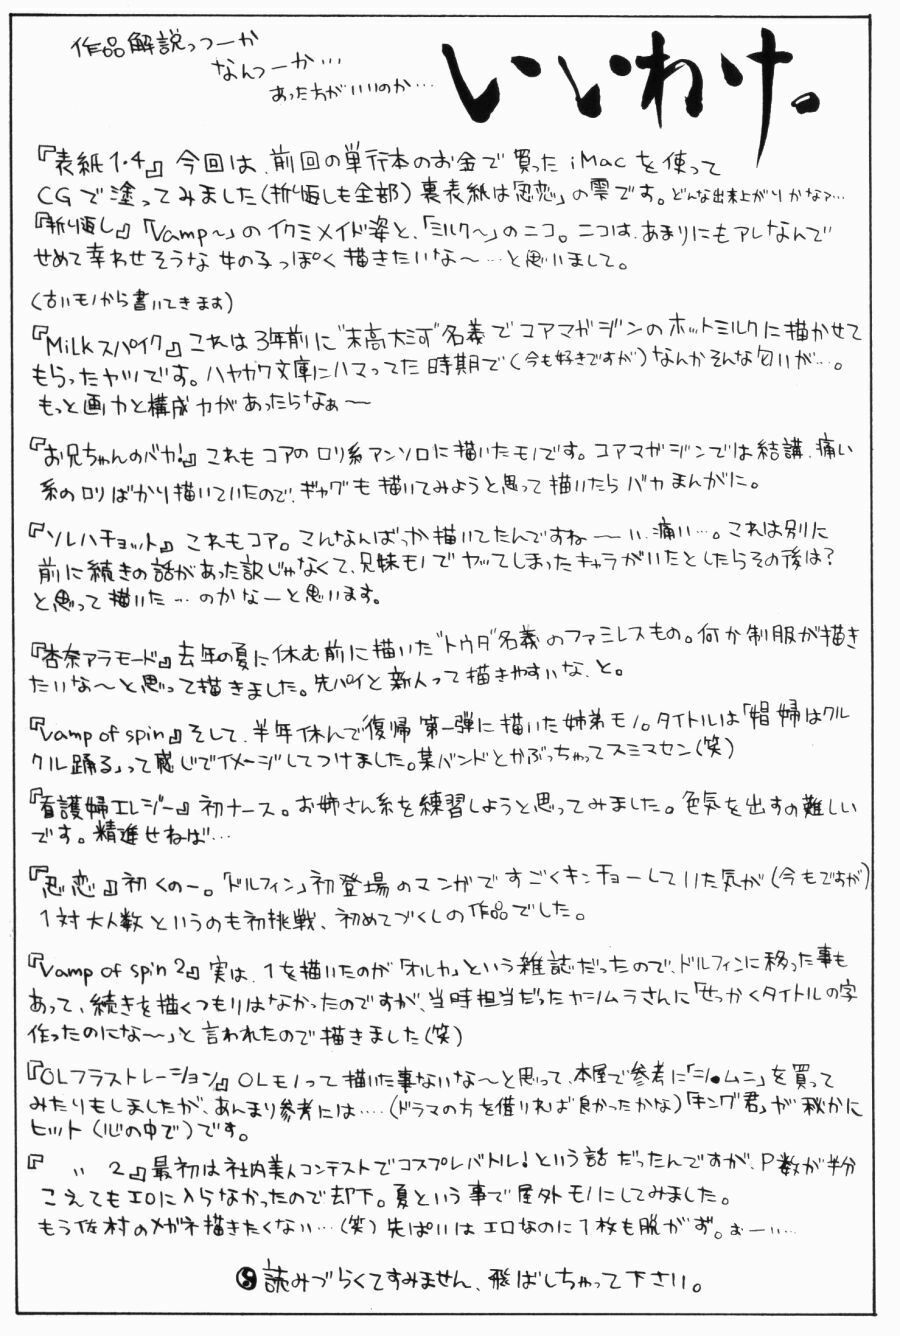 作品解説っつーか
なんつーか…
あった方がいいのか…
いいわけ。
『表紙1・4』今回は、前回の単行本のお金で買ったiMacを使って
CGで塗ってみました(折り返しも全部)裏表紙は「忍恋」の雫です。どんな出来上がりかなァ…
『折り返し』「Vamp〜」のイクミメイド姿と、「ミルク〜」のニコ。ニコは、あまりにもアレなんで
せめて幸わせそうな女の子っぽく描きたいな〜…と思いまして。
(古いモノから書いてきます)
『Milkスパイク』これは3年前に"末高大河"名義でコアマガジンのホットミルクに描かせて
もらったヤツです。ハヤカワ文庫にハマってた時期で(今も好きですが)なんかそんな匂いが…。
もっと画力と構成力があったらなぁ〜
『お兄ちゃんのバカ!』これもコアのロリ系アンソロに描いたモノです。コアマガジンでは結講、痛い
系のロリばかり描いていたので、ギャグも描いてみようと思って描いたらバカまんがに。
『ソレハチョット』これもコア。こんなんばっか描いてたんですね〜い、痛い…。これは別に
前に続きの話があった訳じゃなくて、兄妹モノでヤッてしまったキャラがいたとしたらその後は?
と思って描いた…のかなーと思います。
『杏奈アラモード』去年の夏に休む前に描いた"トウダ"名義のファミレスもの。何か制服が描き
たいな〜と思って描きました。先パイと新人って描きやすいな、と。
『Vamp of spin』そして、半年休んで復帰第一弾に描いた姉弟モノ。タイトルは「娼婦はクル
クル踊る」って感じでイメージしてつけました。某バンドとかぶっちゃってスミマセン(笑)
『看護婦エレジー』初ナース。お姉さん系を練習しようと思ってみました。色気を出すの難しい
です。精進せねば…
『忍恋』初くのー。「ドルフィン」初登場のマンガですごくキンチョーしていた気が(今もですが)
1対大人数というのも初挑戦、初めてづくしの作品でした。
『Vamp of spin 2』実は、1を描いたのが「オルカ」という雑誌だったので、ドルフィンに移った事も
あって、続きを描くつもりはなかったのですが、当時担当だったヤシムラさんに「せっかくタイトルの字
作ったのにな〜」と言われたので描きました(笑)
『OLフラストレーション』OLモノって描いた事ないな〜と思って、本屋で参考に「シ●ムニ」を買って
みたりもしましたが、あんまり参考には…(ドラマの方を借りれば良かったかな)「キング君」が秘かに
ヒット(心の中で)です。
『　〃　2』最初は社内美人コンテストでコスプレバトル!という話だったんですが、P数が半分
こえてもエロに入らなかったので却下。夏という事で屋外モノにしてみました。
もう佐村のメガネ描きたくない…(笑)先ぱいはエロなのに1枚も脱がず。おーい…
読みづらくてすみません、飛ばしちゃって下さい。